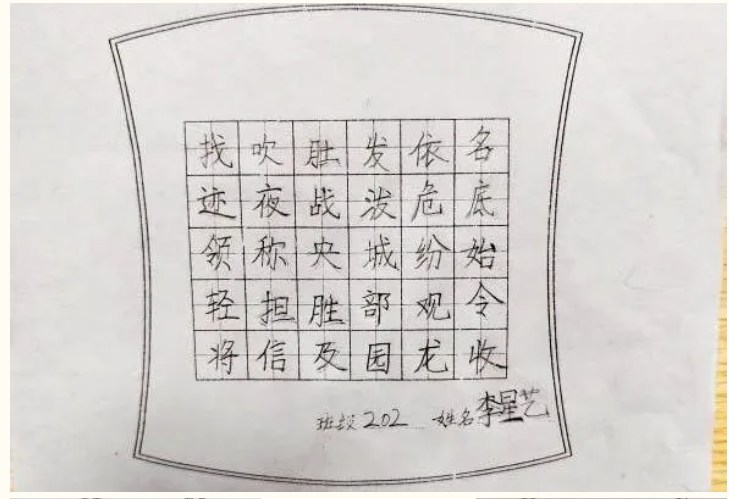 找吹肚发依名
迹夜战泼危底
领称央城纷始
轻担胜部观令
将信及园龙收
班级202 姓名李星艺